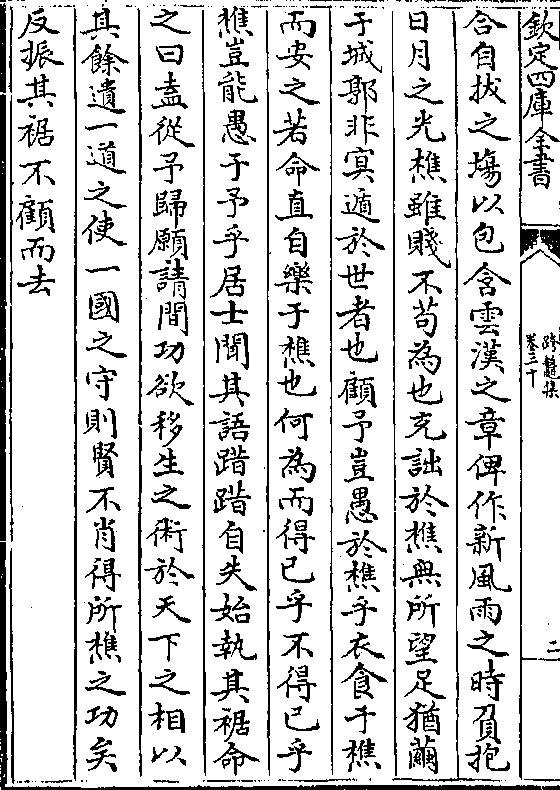 欽定四庫全書
卷三十
二
合自拔之塲以包含雲漢之章俾作新風雨之時負抱
日月之光樵雖賤不苟為也充詘於樵無所望足猶繭
于城郭非冥遁於世者也顧予豈愚於樵乎衣食于樵
而安之若命直自樂于樵也何為而得已乎不得已乎
樵豈能愚于予乎居士聞其語踖踖自失始執其裾命
之曰盍從予歸願請間功欲移生之術於天下之相以
其餘遺一道之使一國之守則賢不肖得所樵之功矣
反振其裾不顧而去